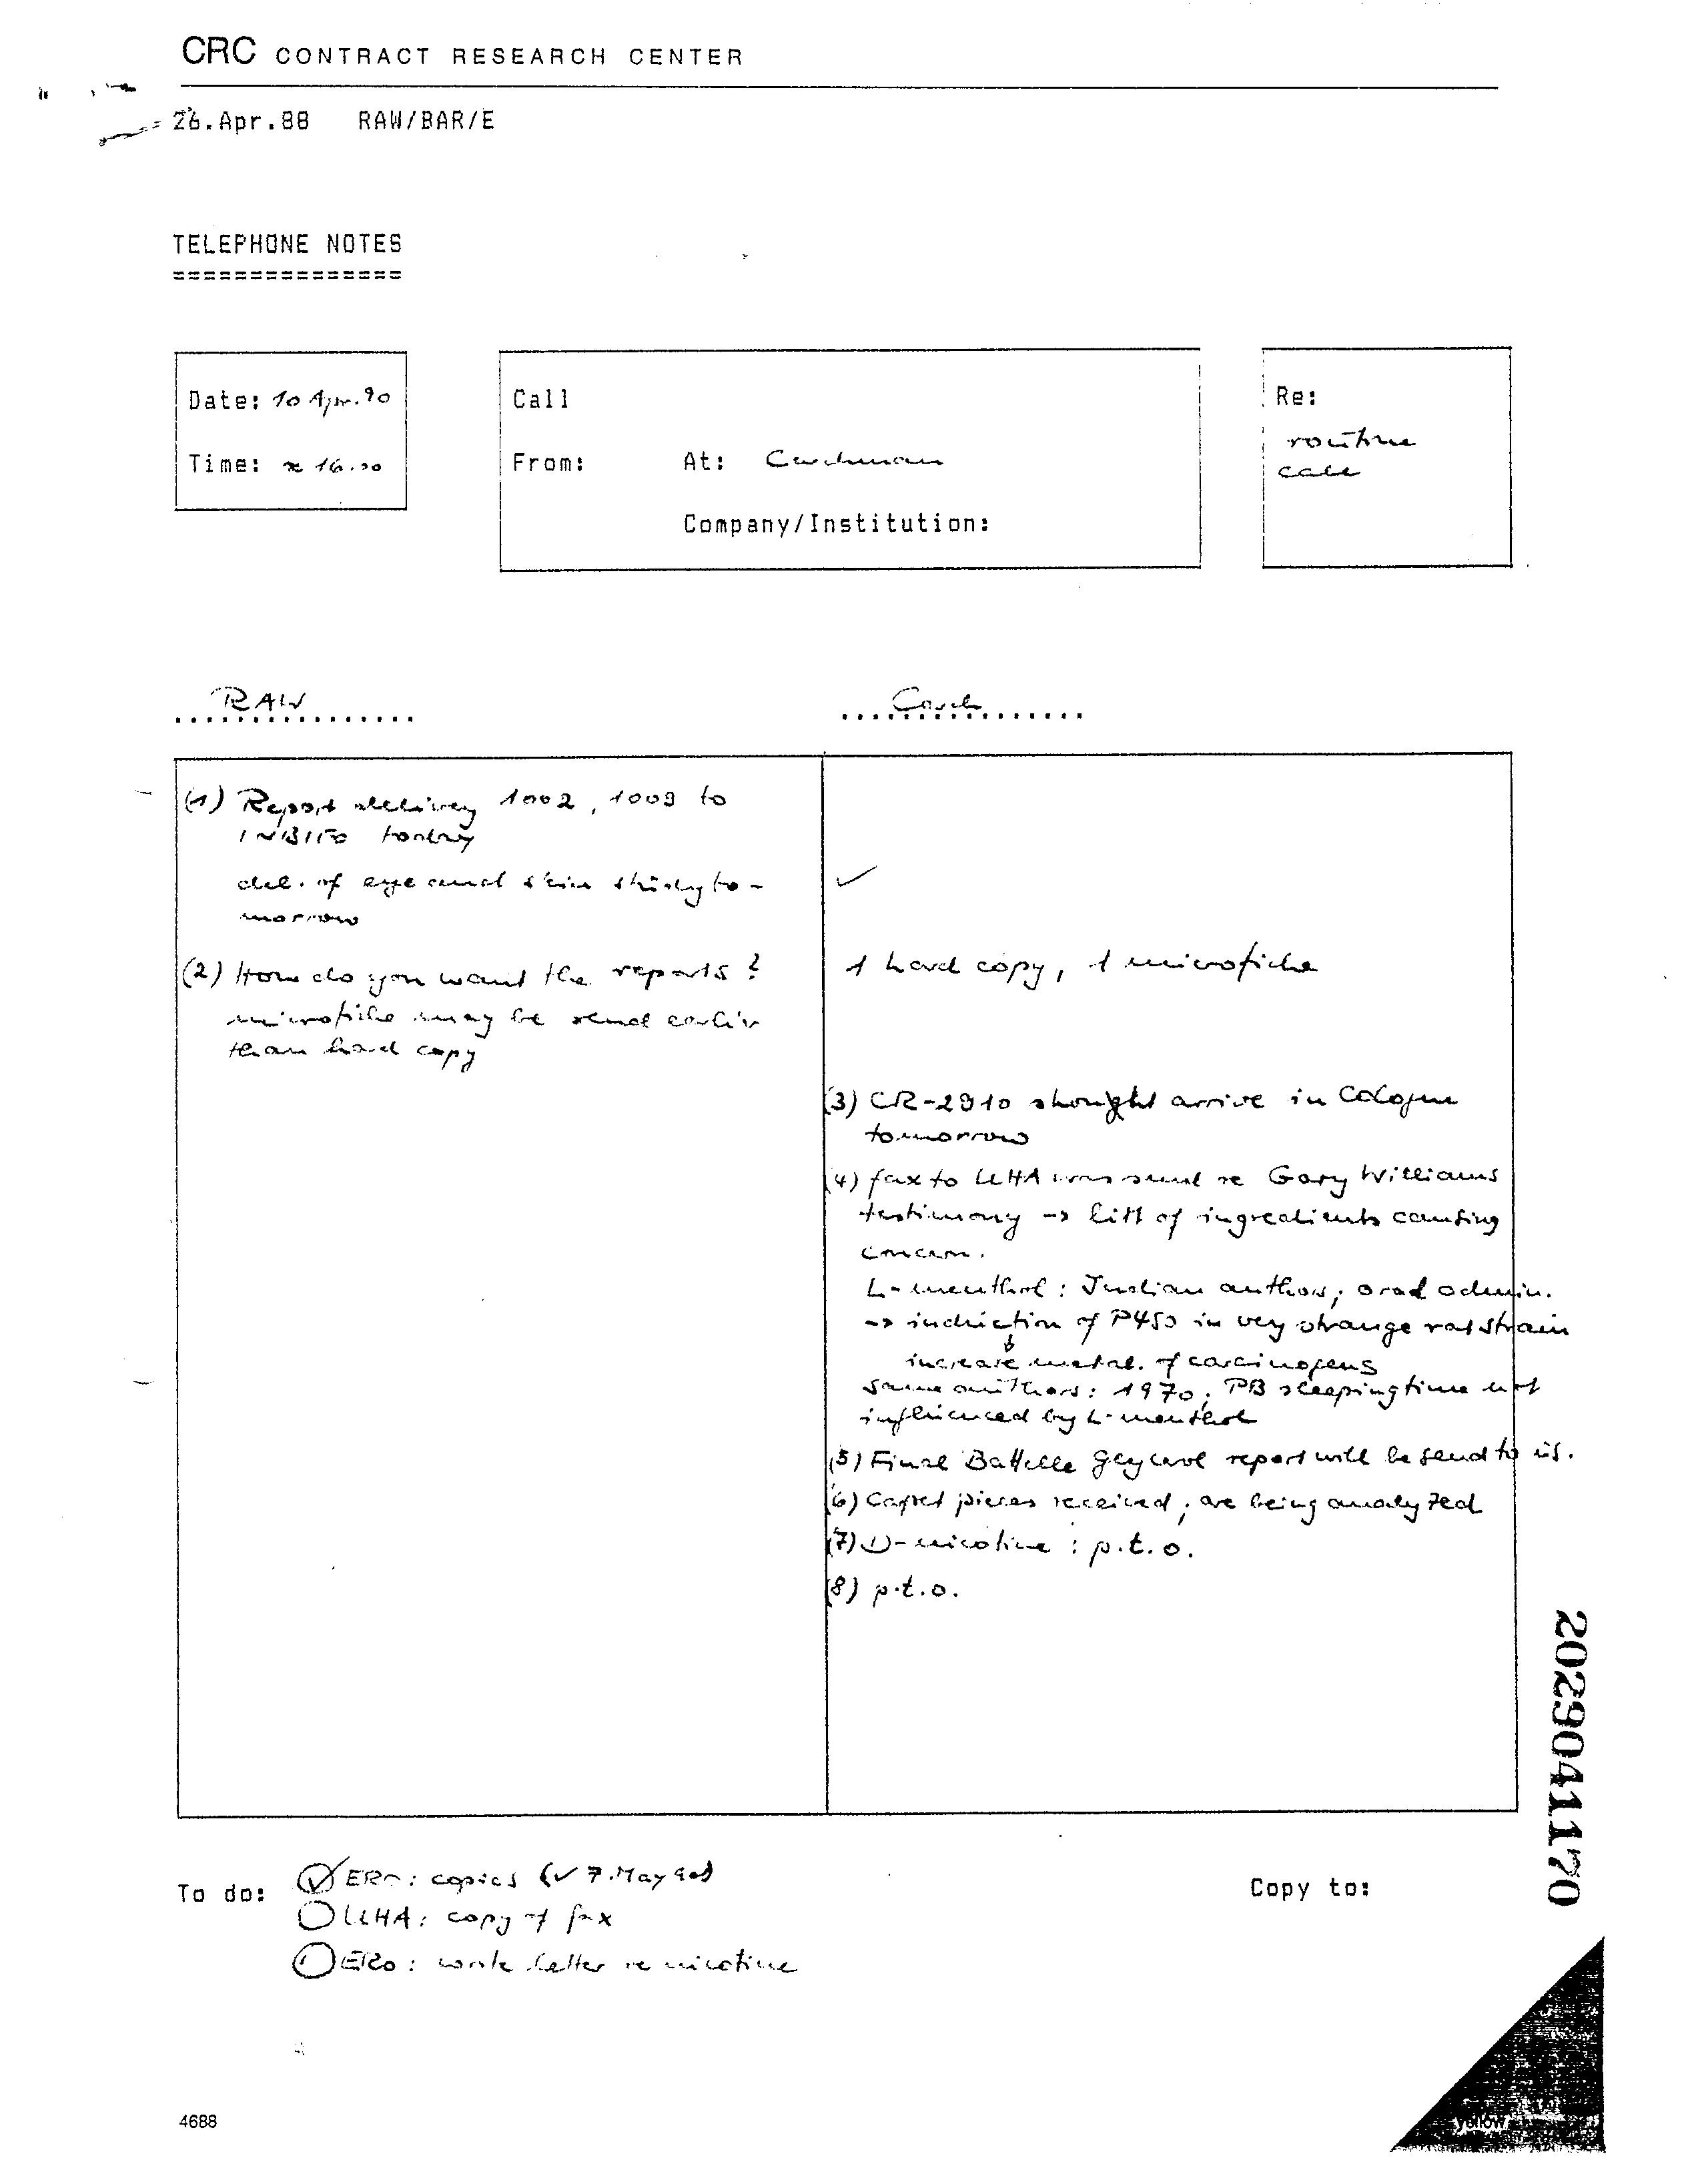 CRC CONTRACT RESEARCH CENTER
26.Apr.88 RAW/BAR/E
TELEPHONE NOTES
===============
Date: 10 Apr. 90
Time: ≈ 16.00
Call
From: At: Carchman
Company/Institution:
Re:
routine
call
RAW
Carch
(1) Report delivery 1002, 1009 to
INBIFO today
del. of eye and skin study to-
morrow
✓
(2) How do you want the reports?
microfiche may be send earlier
than hard copy
1 hard copy, 1 microfiche
(3) CR-2910 shought arrive in Cologne
tomorrow
(4) fax to UHA was send re Gary Williams
testimony → list of ingredients causing
concern.
L-menthol: Indian authors; oral admin.
→ induction of P450 in very strange rat strain
↓
increase metab. of carcinogens
same authors: 1970: PB sleeping time not
influenced by L-menthol
(5) Final Battelle Glycerol report will be send to us.
(6) Carpet pieces received; are being analyzed
(7) D-nicotine: p.t.o.
(8) p.t.o.
To do:
ERo: copies (✓ 7. May 90)
UHA: copy of fax
ERo: write letter re nicotine
Copy to:
2029041170
4688
yellow